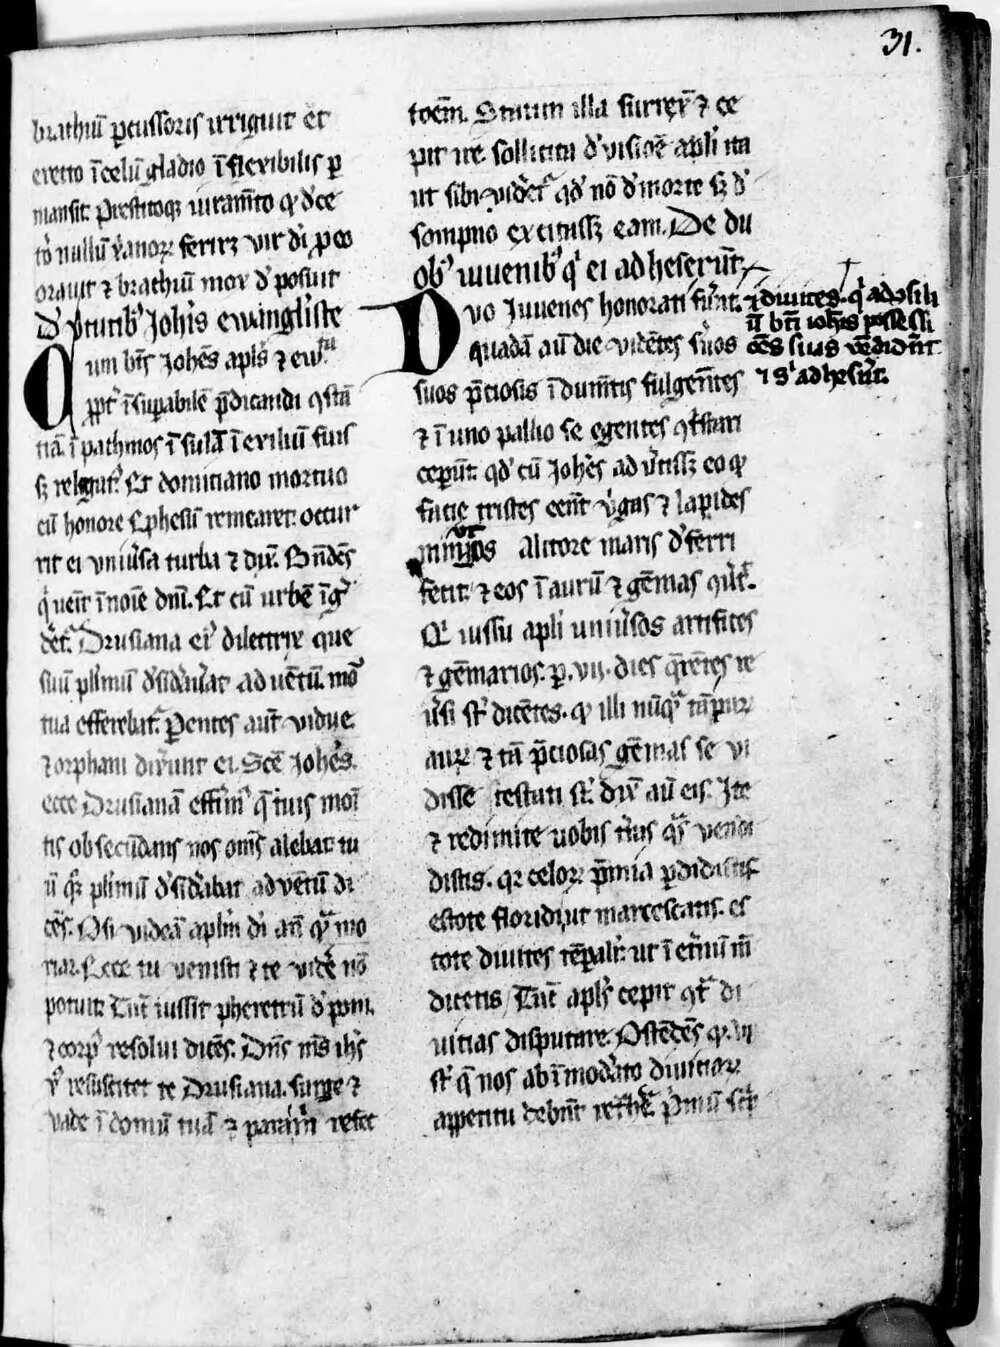 31.
brachiū ꝑcussoris irriguit et
erecto ī celū gladio īflexibilis ꝑ
mansit. Prestitoqꝫ iuram̄to qꝫ d'ce
to nullū x̄anoꝝ feriret vir di ꝓeo
orauit ⁊ brachiū mox d'posuit
D' v̓tutibꝰ Joh̄is ewāgliste
Qum bt̄s Joh̄es apl̄s ⁊ ew̄ta
ꝓpt̓ īsuꝑabilē p̄dicandi ꝯstā
tiā. ī pathmos īsulā ī exiliū fuis
sꝫ relegatꝰ. Et domitiano mortuo
cū honore Ephesū remearet: occur
rit ei vniu̓sa turba ⁊ dix̄. Bn̄dcs̄
q̓ ueīt ī noīe dn̄i. Et cū urbē īgr̄
det̓. Drusiana eiꝰ dilectrix que
suū pl̓imū d'sid̓au̓at aduētū. mor
tua efferebat̓. Parentes aūt vidue
⁊ orphani dix̓unt ei. Scē Joh̄es.
ecce Drusianā effim̓ q̄ tuis moī
tis obsecūdans nos om̄s alebat: tu
ū qꝫ pl̓imū d'sid̓abat aduētū di
cēs. Osi videā apl̄m di an̄ qͣ mo
riar. Ecce tu venisti ⁊ te vid̓e nō
potuit. Tūc iussit pheretrū d'poni.
⁊ corpꝰ resolui dicēs. Dn̄s m̄s ih̄s
x̄ resuscitet te Drusiana. surge ⁊
vade ī domū tuā ⁊ para m̓ refec
toēm. Statim illa surrex̄ ⁊ ce
pit ire sollicita d' visioē apl̓i ita
ut sibi vid̓et̓ qd' nō d'morte sꝫ d'
sompno excitassꝫ eam. De du
obꝰ iuuenibꝰ q̓ ei adheserūt
Duo Juuenes honorati fu̓nt.
quadā aū die vidētes su̓os
suos p̄ciosis īdum̄tis fulgentes
⁊ ī uno pallio se egentes ꝯt̓stari
ceperūt. qd' cū Joh̄es adu̓tissꝫ eo qꝫ
facie tristes eēnt v̓gas ⁊ lapides
minutos a litore maris d'ferri
fecit: ⁊ eos ī aurū ⁊ gēmas ꝯu̓t̓.
Qi iussu apl̓i uniu̓sos artifices
⁊ gēmarios. ꝑ. vij. dies q̄rētes re
u̓si st̓ dicētes. qꝫ illi nūqͣ tā puꝝ
auꝝ ⁊ tā p̄ciosas gēmas se vi
disse testati st̓. dix̄ aū eis. Ite
⁊ redimite uobis t̓ras q̓s vendi
distis. qꝛ celoꝝ p̄mia ꝑdidistis.
estote floridi, ut marcescatis. es
tote diuites tēpalit̓: ut ī et̓nū m̄
dicetis / Tūc apl̄s cepit ꝯt̓ di
uitias disputare. Ostēdēs qꝫ vj
st̓ q̄ nos ab īmod̓ato diuitiaꝝ
appetitu debēnt ref̓nare. Primū sc̓p
⁊ diuites. q̓ ad ꝯsili
ū bt̄i ioh̄is possessi
ōes suas vēdid̓ūt
⁊ sͥ adhes̓ūt.